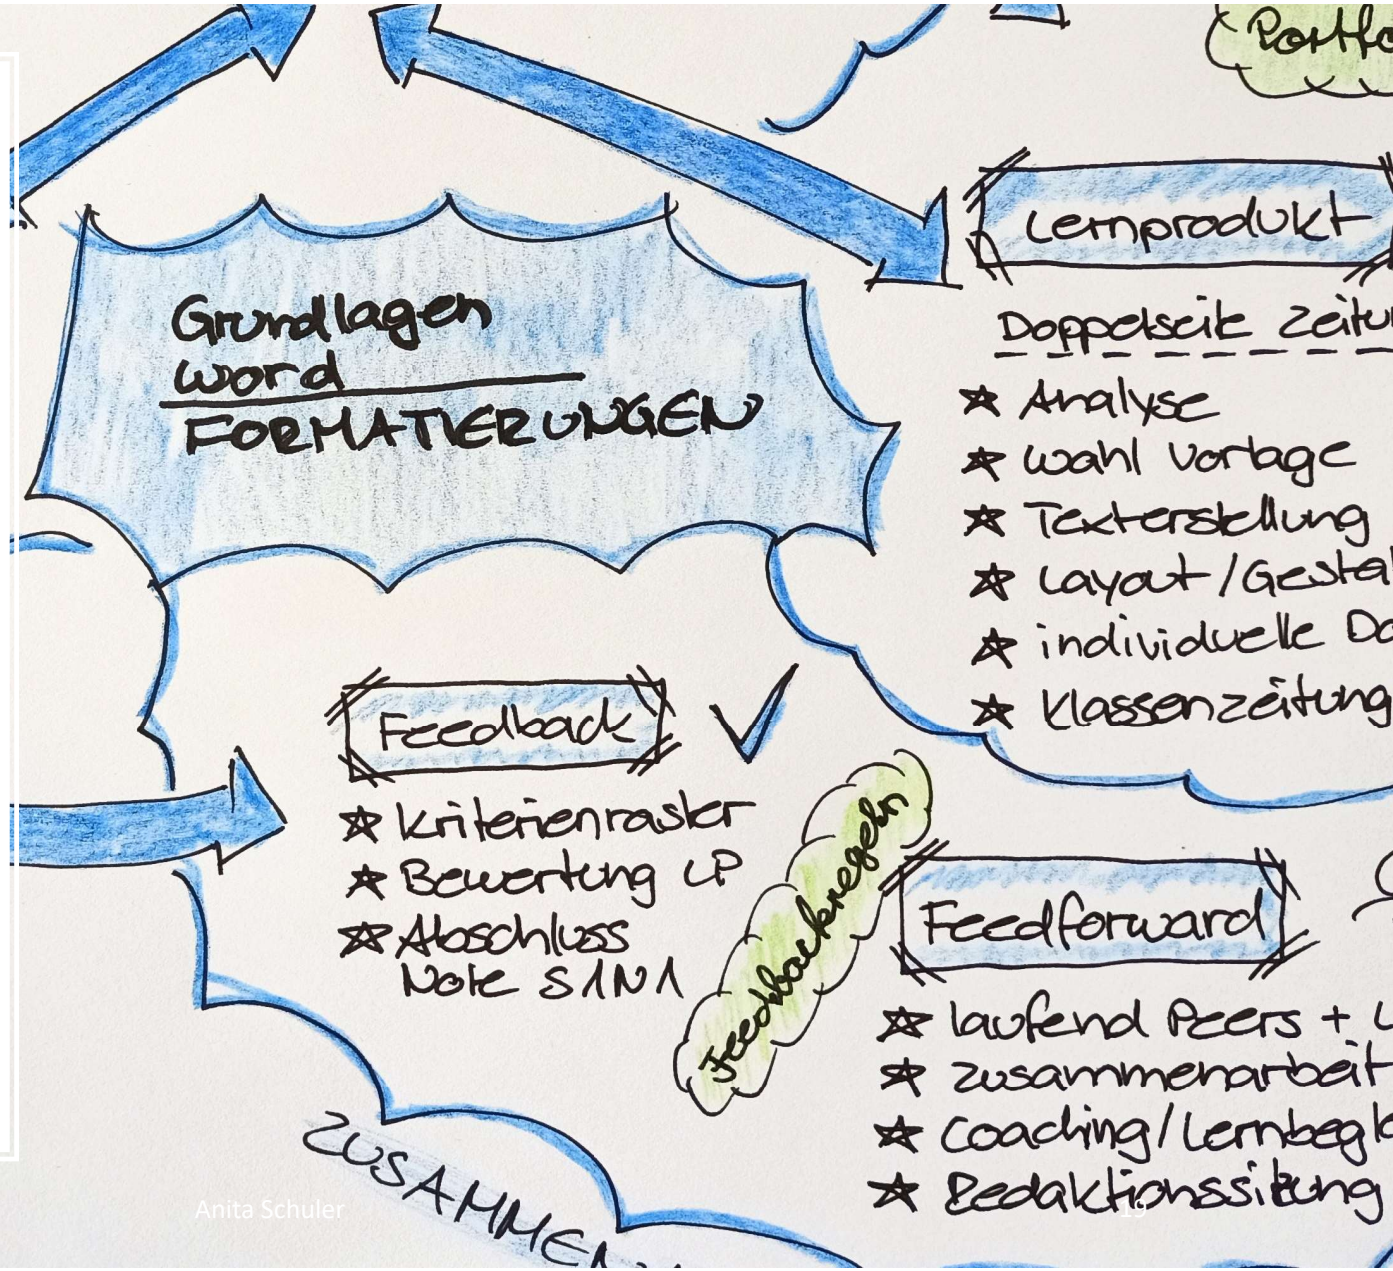 Portfo
Lernprodukt
Doppelseite Zeitu
Analyse
Wahl Vorlage
Texterstellung
Layout / Gestal
individuelle Do
Klassenzeitung
Grundlagen
Word
FORMATIERUNGEN
Feedback
Kriterienraster
Bewertung LP
Abschluss
Note S1N1
Feedbackregeln
Feedforward
laufend Peers + L
Zusammenarbeit
Coaching/Lernbegle
Redaktionssitzung
ZUSAMMEN
Anita Schuler
19